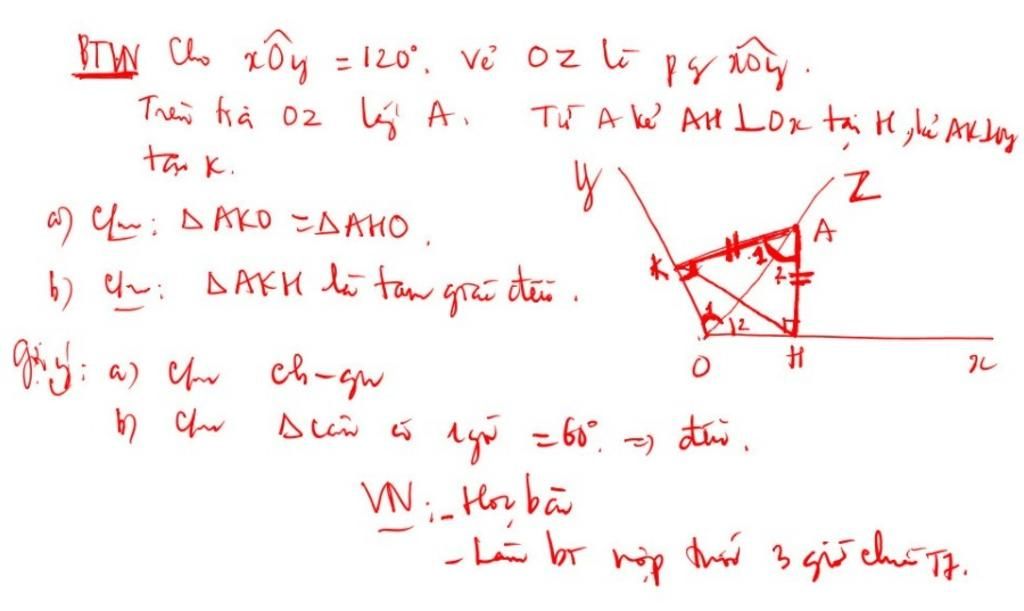 BTVN Cho xÔy = 120°. Vẽ OZ là pg xÔy.
Trên tia OZ lấy A. Từ A kẻ AH ⊥ Ox tại H, kẻ AK ⊥ Oy
tại K.
a) Cm: ΔAKO = ΔAHO.
b) Cm: ΔAKH là tam giác đều.
y
Z
A
K
1
2
1
2
O
H
x
Gợi ý: a) Cm ch-gn
b) Cm Δ cân có 1 góc = 60°. => đều.
VN: - Học bài
- Làm bt nộp trước 3 giờ chiều T7.